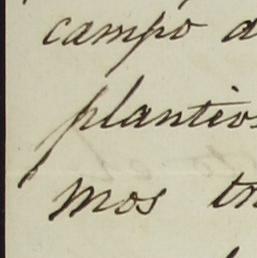 campo
plantios
mos